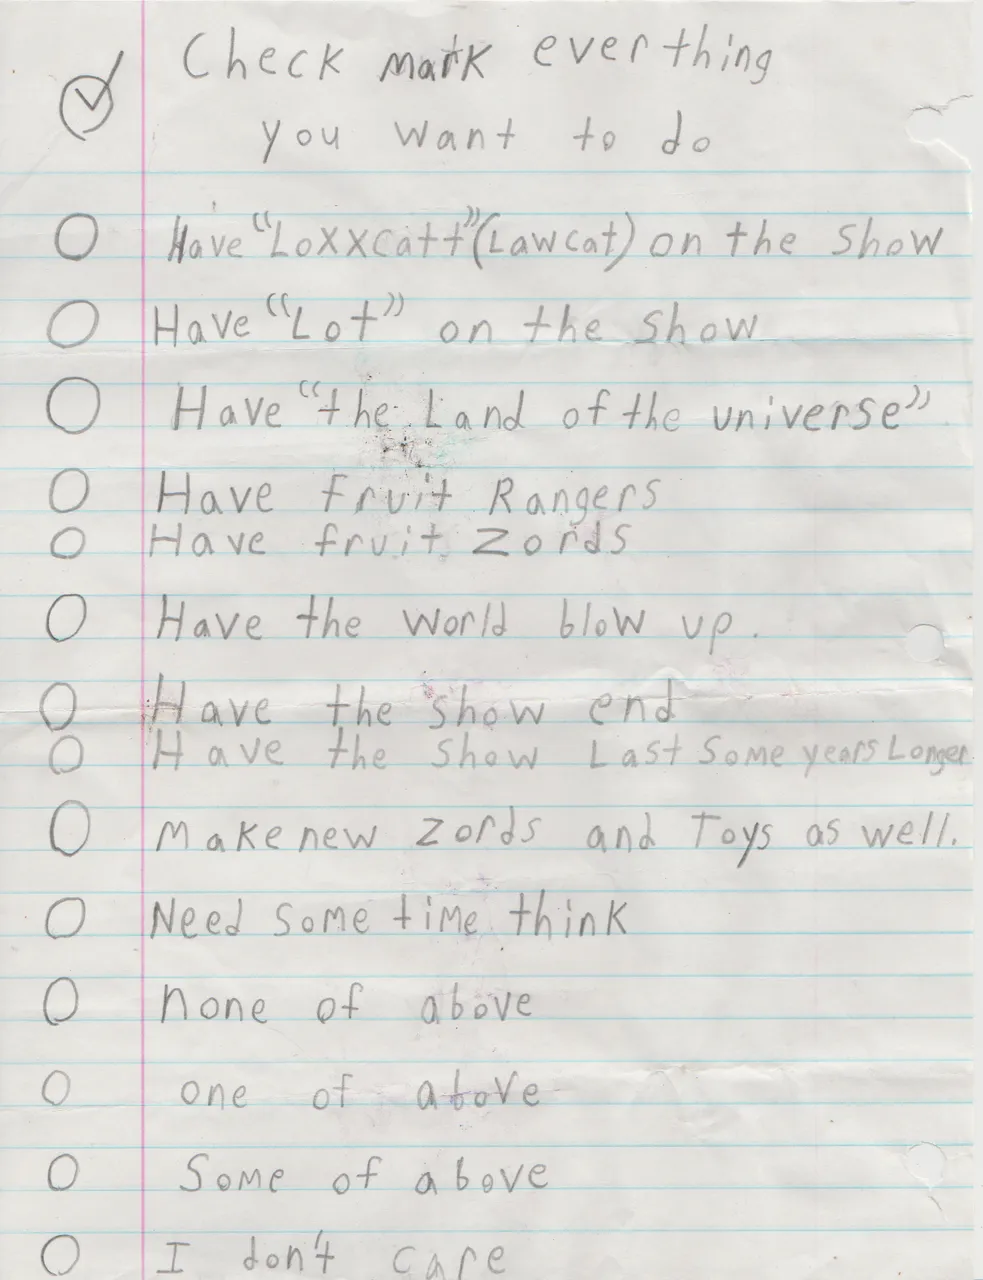 Check mark everthing
you want to do
Have "Loxxcatt" (Lawcat) on the show
Have "Lot" on the show
Have "the Land of the universe"
Have fruit Rangers
Have fruit Zords
Have the world blow up.
Have the show end
Have the show Last Some years Longer
Make new Zords and Toys as well.
Need some time think
none of above
one of above
Some of above
I don't care